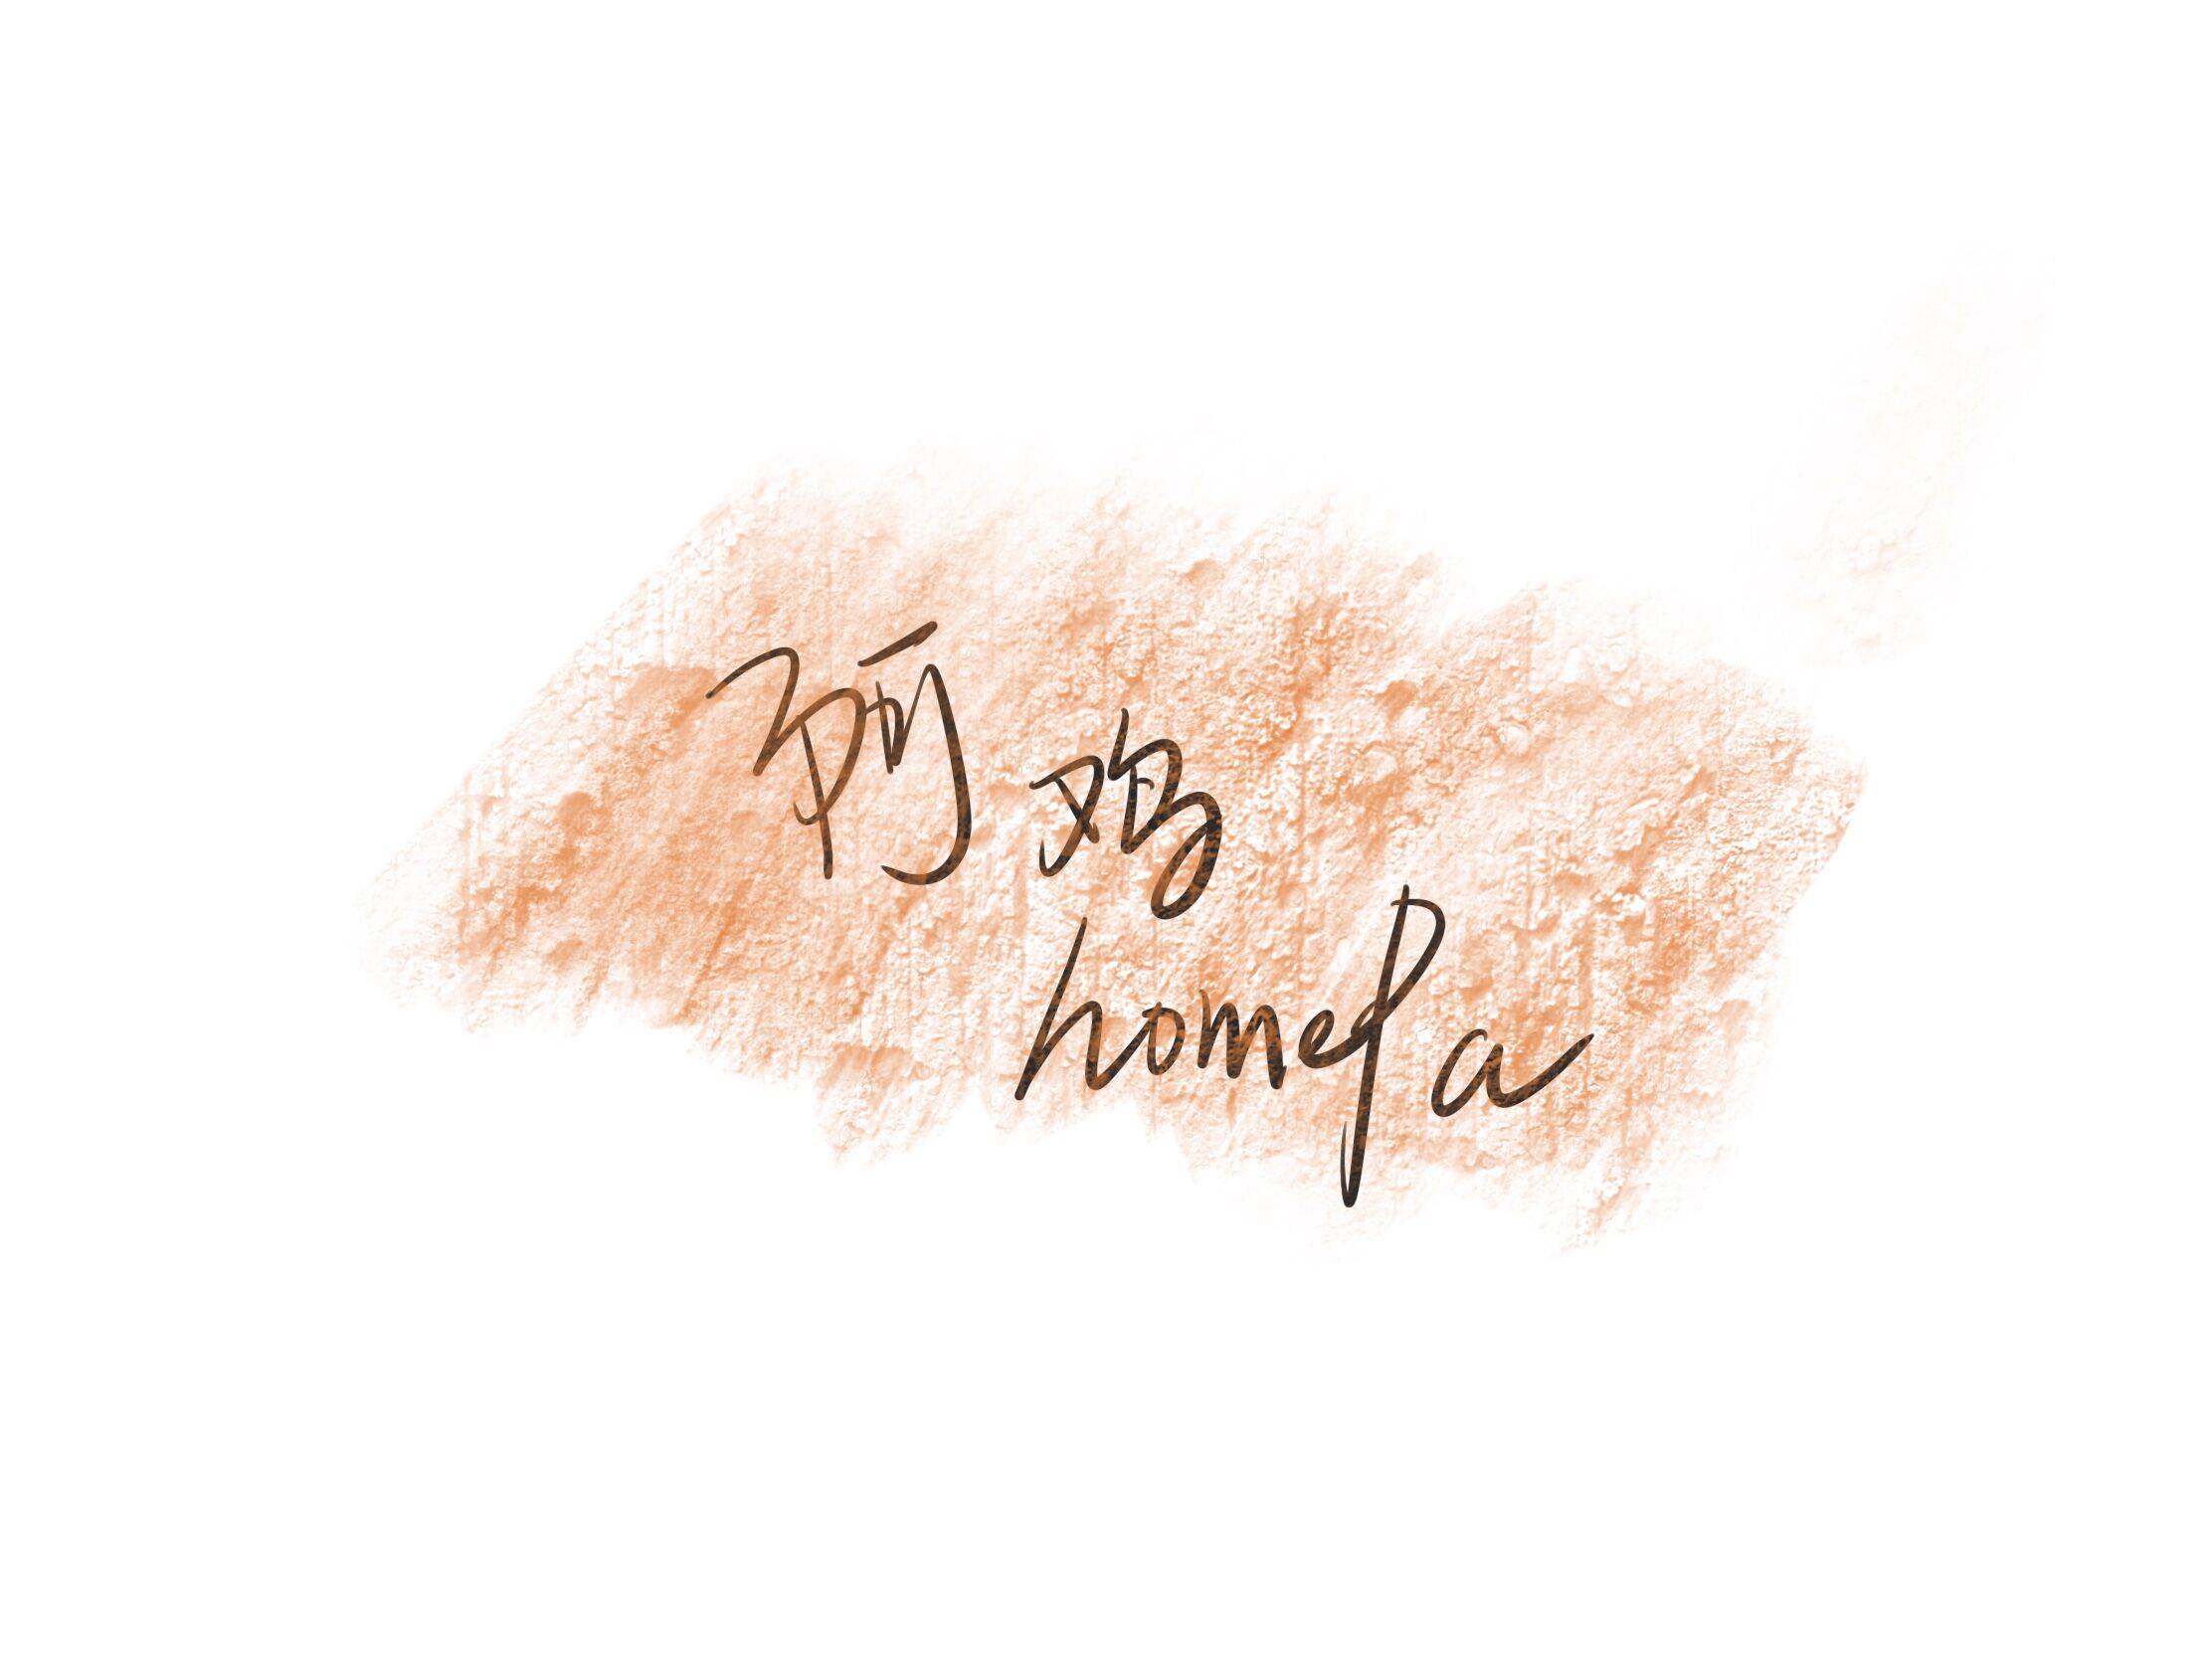 阿鸡
homePa